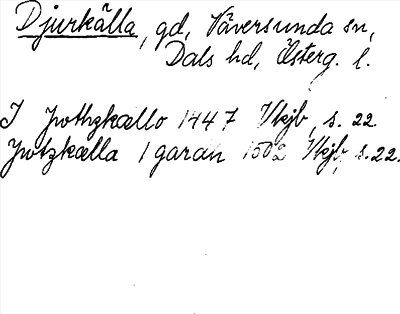 Djurkälla, gd, Väversunda sn,
Dals hd, Österg. l.
I jwothzkællo 1447 Vkjb, s. 22.
jwtzkælla 1 gardh 1502 Vkjb, s. 22.